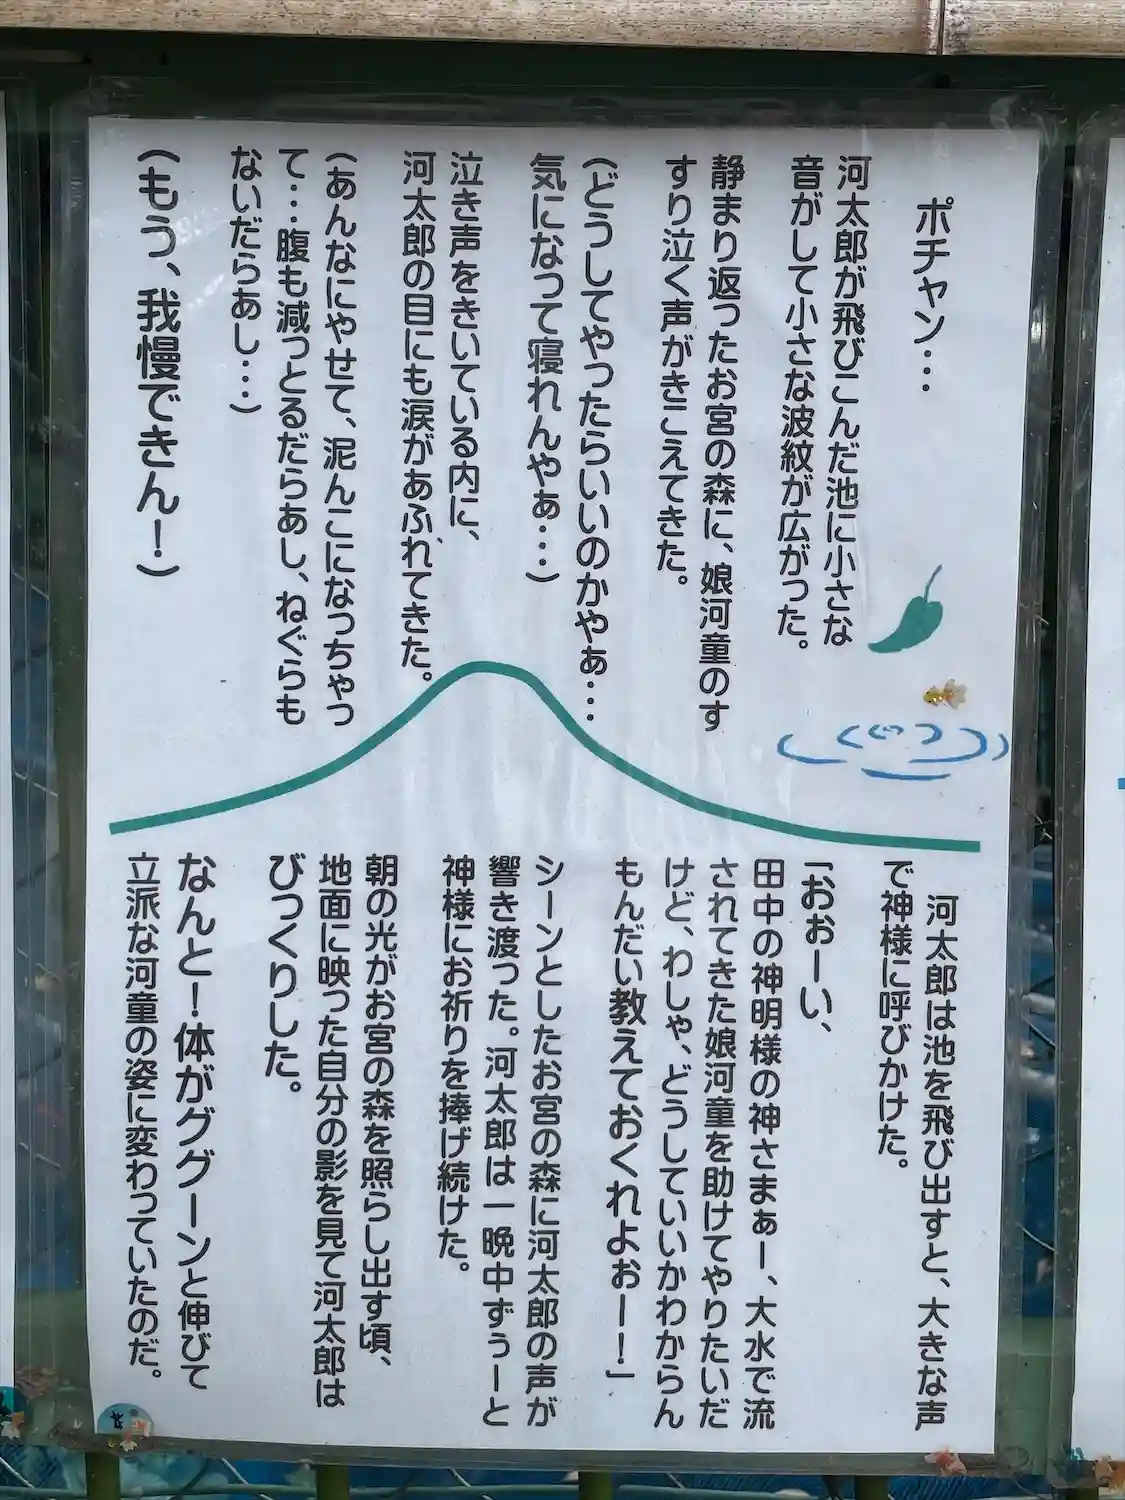 ポチャン…
河太郎が飛びこんだ池に小さな
音がして小さな波紋が広がった。
静まり返ったお宮の森に、娘河童のす
すり泣く声がきこえてきた。
(どうしてやったらいいのかやぁ…
気になって寝れんやぁ…)
泣き声をきいている内に、
河太郎の目にも涙があふれてきた。
(あんなにやせて、泥んこになっちゃっ
て…腹も減っとるだらあし、ねぐらも
ないだらあし…)
(もう、我慢できん!)
河太郎は池を飛び出すと、大きな声
で神様に呼びかけた。
「おぉーい、
田中の神明様の神さまぁー、大水で流
されてきた娘河童を助けてやりたいだ
けど、わしゃ、どうしていいかわからん
もんだい教えておくれよぉー!」
シーンとしたお宮の森に河太郎の声が
響き渡った。河太郎は一晩中ずぅーと
神様にお祈りを捧げ続けた。
朝の光がお宮の森を照らし出す頃、
地面に映った自分の影を見て河太郎は
びっくりした。
なんと!体がググーンと伸びて
立派な河童の姿に変わっていたのだ。